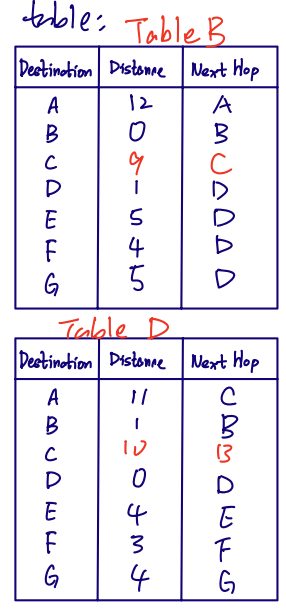 table:
Table B
Destination Distance Next Hop
A 12 A
B 0 B
C 9 C
D 1 D
E 5 D
F 4 D
G 5 D
Table D
Destination Distance Next Hop
A 11 C
B 1 B
C 10 B
D 0 D
E 4 E
F 3 F
G 4 G